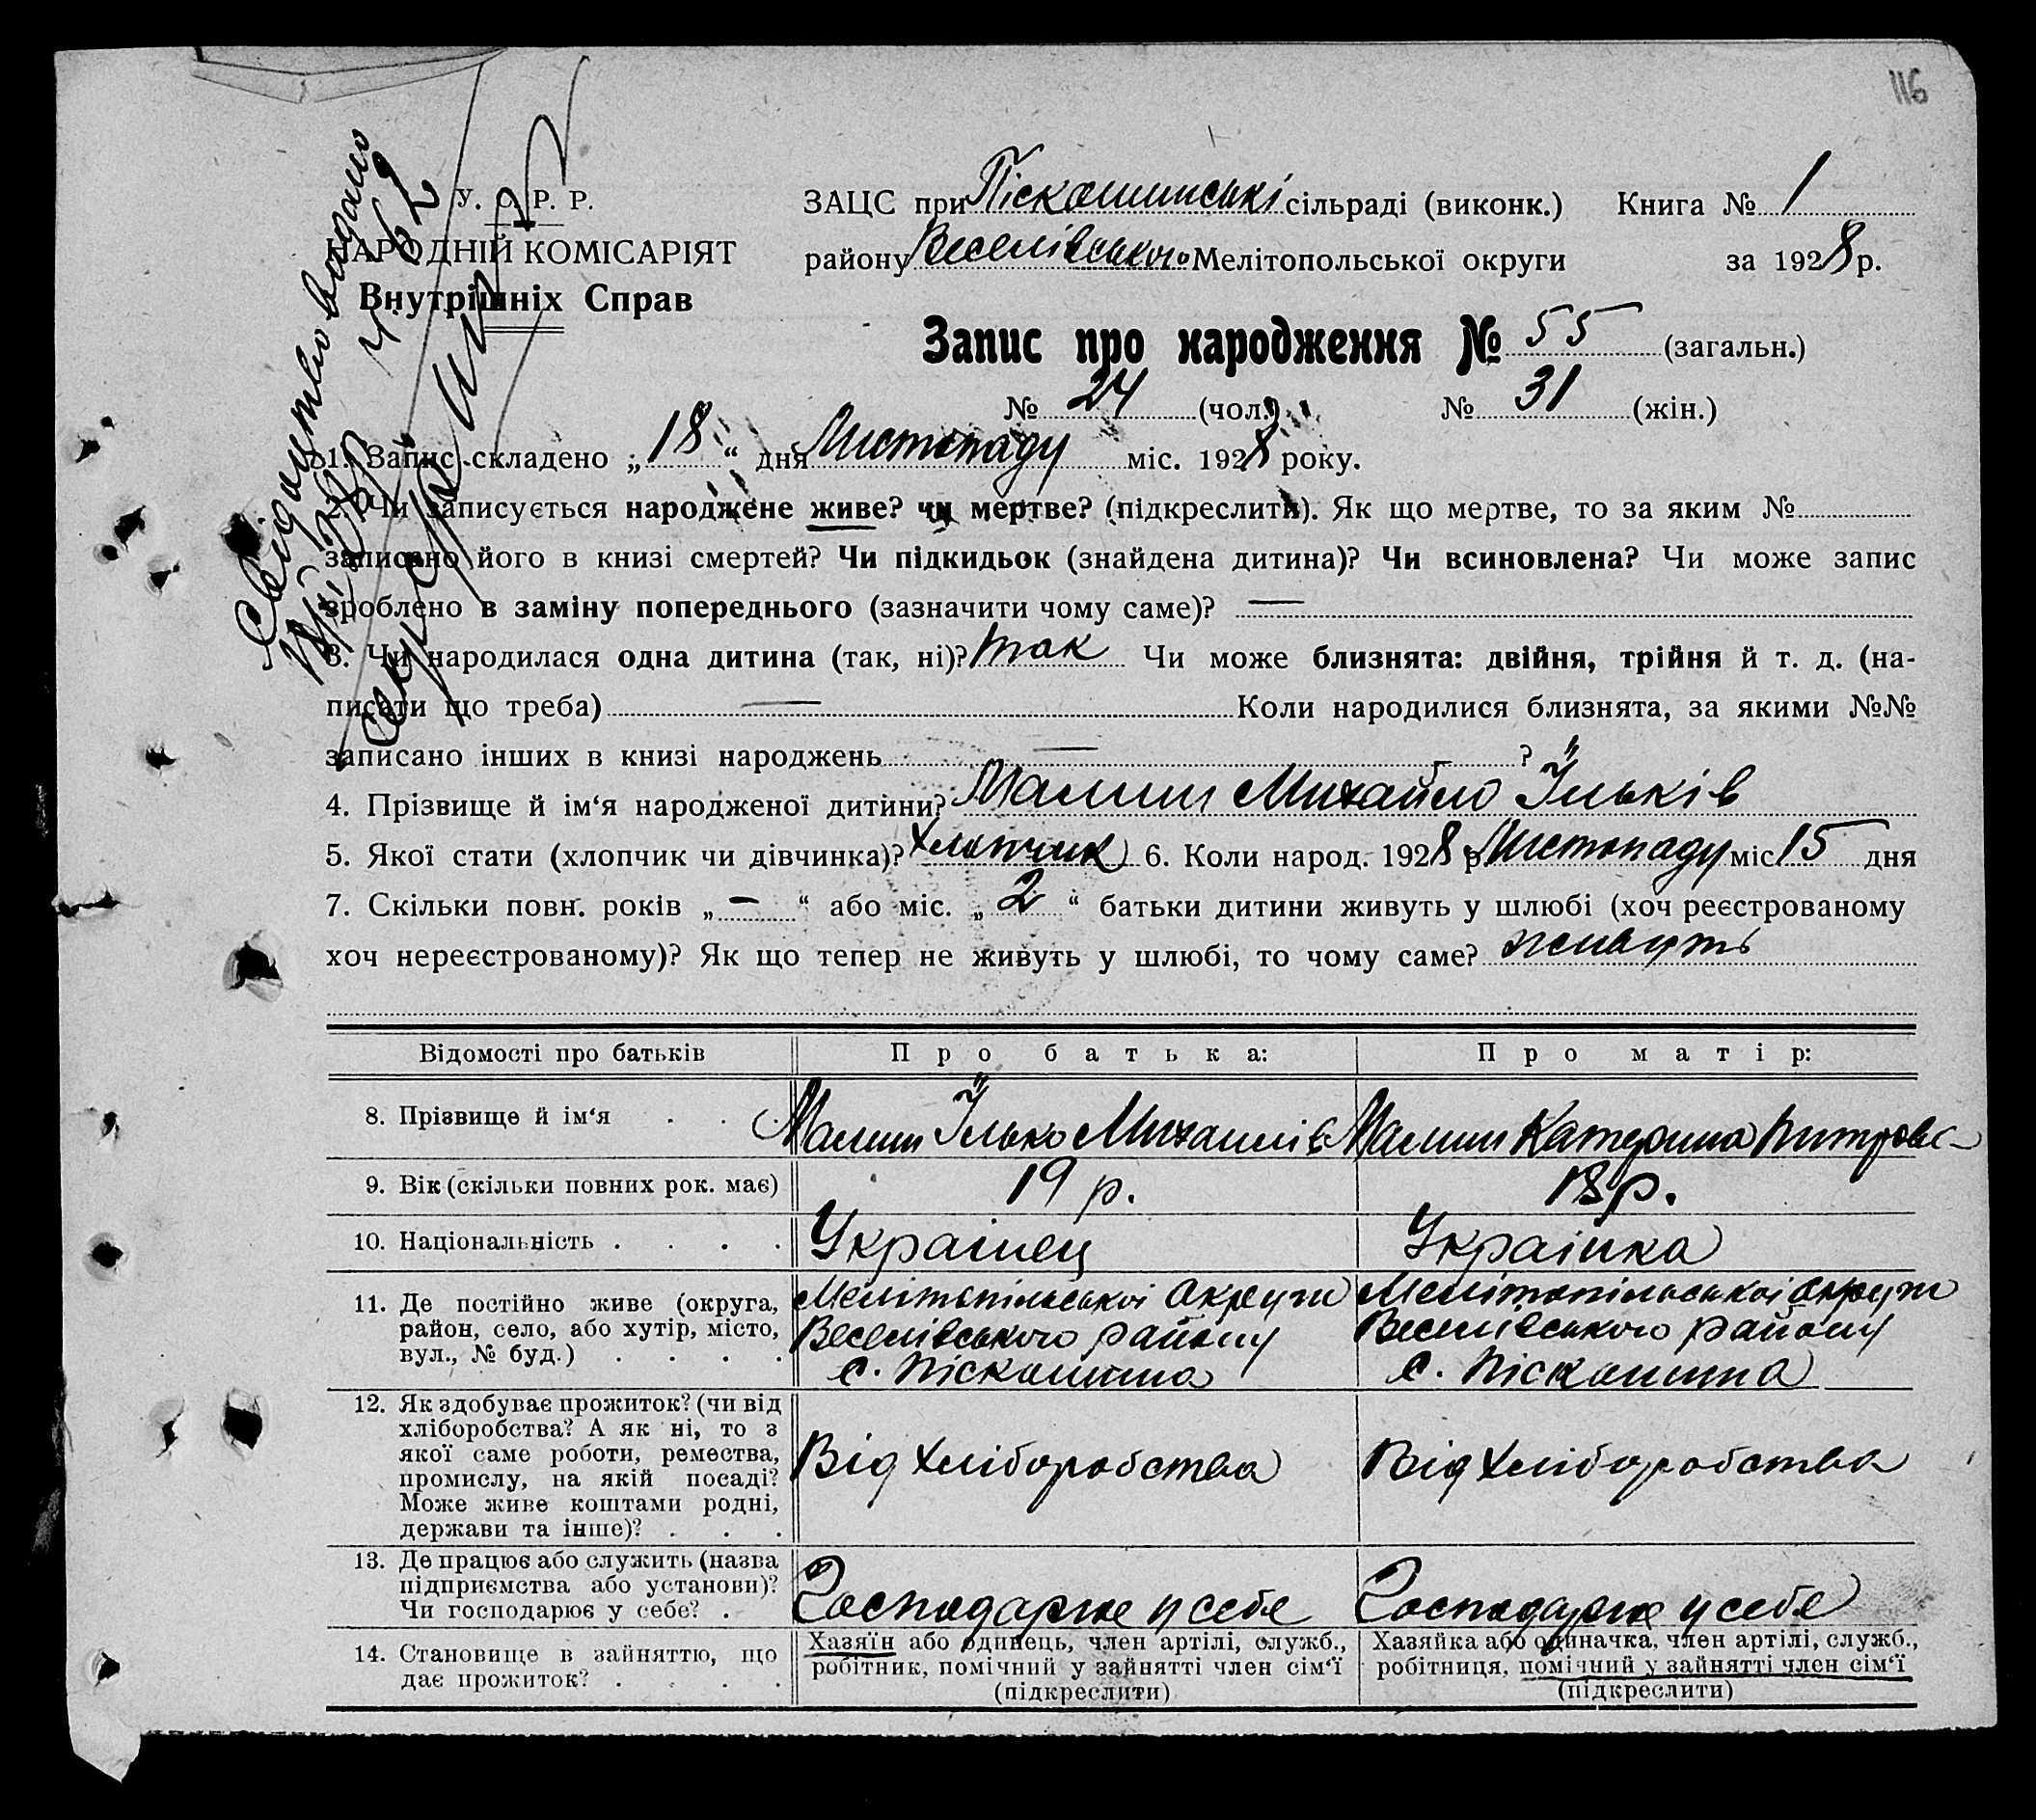 116
Свідоцтво видано
У. С. Р. Р.
НАРОДНІЙ КОМІСАРІЯТ
Внутрішніх Справ
ЗАЦС при Піскошинські сільраді (виконк.) Книга № 1
району Веселівського Мелітопольської округи за 1928 р.
Запис про народження № 55 (загальн.)
№ 24 (чол.) № 31 (жін.)
1. Запис складено „18“ дня Листопаду міс. 1928 року.
2. Чи записується народжене живе? чи мертве? (підкреслити). Як що мертве, то за яким №
записано його в книзі смертей? Чи підкидьок (знайдена дитина)? Чи всиновлена? Чи може запис
зроблено в заміну попереднього (зазначити чому саме)? —
3. Чи народилася одна дитина (так, ні)? так Чи може близнята: двійня, трійня й т. д. (на-
писати що треба) — Коли народилися близнята, за якими №№
записано інших в книзі народжень — ?
4. Прізвище й ім‘я народженої дитини? Малиш Михайло Їльків
5. Якої стати (хлопчик чи дівчинка)? хлопчик 6. Коли народ. 1928 р. Листопаду міс 15 дня
7. Скільки повн. років „—“ або міс. „2“ батьки дитини живуть у шлюбі (хоч реєстрованому
хоч нереєстрованому)? Як що тепер не живуть у шлюбі, то чому саме? живуть
Відомості про батьків Про батька: Про матір:
8. Прізвище й ім‘я . . . Малиш Їлько Михайлів Малиш Катерина
9. Вік (скільки повних рок. має) 19 р. 18 р.
10. Національність . . . . Українец Українка
11. Де постійно живе (округа, район, село, або хутір, місто, вул., № буд.) . . . .
Мелітопільської Округи
Веселівського району
с. Піскошина
Мелітопільської округи
Веселівського району
с. Піскошина
12. Як здобуває прожиток? (чи від
хліборобства? А як ні, то з
якої саме роботи, ремества,
промислу, на якій посаді?
Може живе коштами родні,
держави та інше)? . . .
Від хліборобства Від хліборобства
13. Де працює або служить (назва
підприємства або установи)?
Чи господарює у себе? .
Господарює у себе Господарює у себе
14. Становище в зайняттю, що
дає прожиток? . . . .
Хазяїн або одинець, член артілі, служб.,
робітник, помічний у зайнятті член сім‘ї
(підкреслити)
Хазяйка або одиначка, член артілі, служб.,
робітниця, помічний у зайнятті член сім‘ї
(підкреслити)